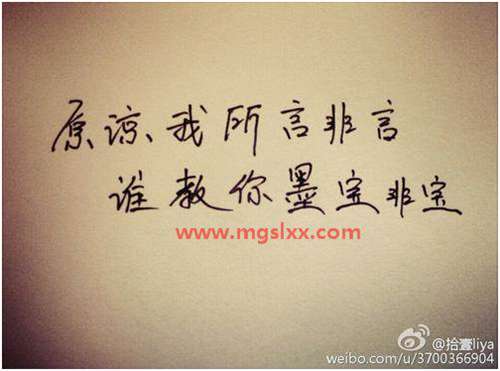 原谅、我所言非言
谁教你墨宝非宝
www.mgslxx.com
@拾壹liya
weibo.com/u/3700366904